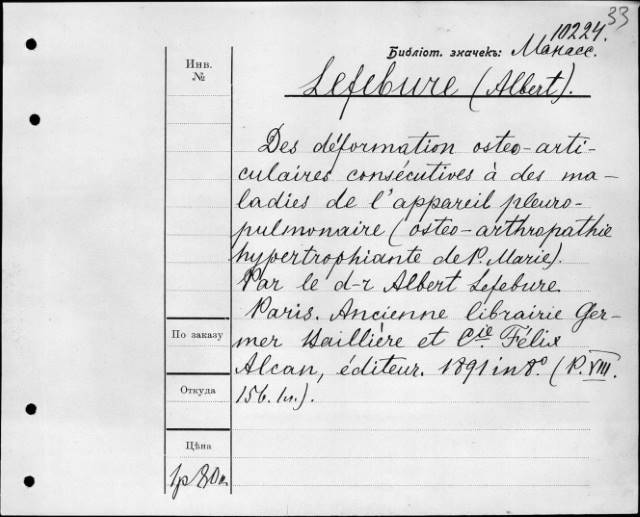 33
10224.
Библіот. значекъ: Манасс.
Инв.
№
Lefebure (Albert).
Des déformation osteo-arti-
culaires consécutives à des ma-
ladies de l'appareil pleuro-
pulmonaire (osteo-arthropathie
hypertrophiante de P. Marie).
Par le d-r Albert Lefebure.
Paris. Ancienne librairie Ger-
mer Baillière et Cie Félix
Alcan, éditeur. 1891 in 8º. (P. VIII.
156. 1 л.).
По заказу
Откуда
Цѣна
1р 80к